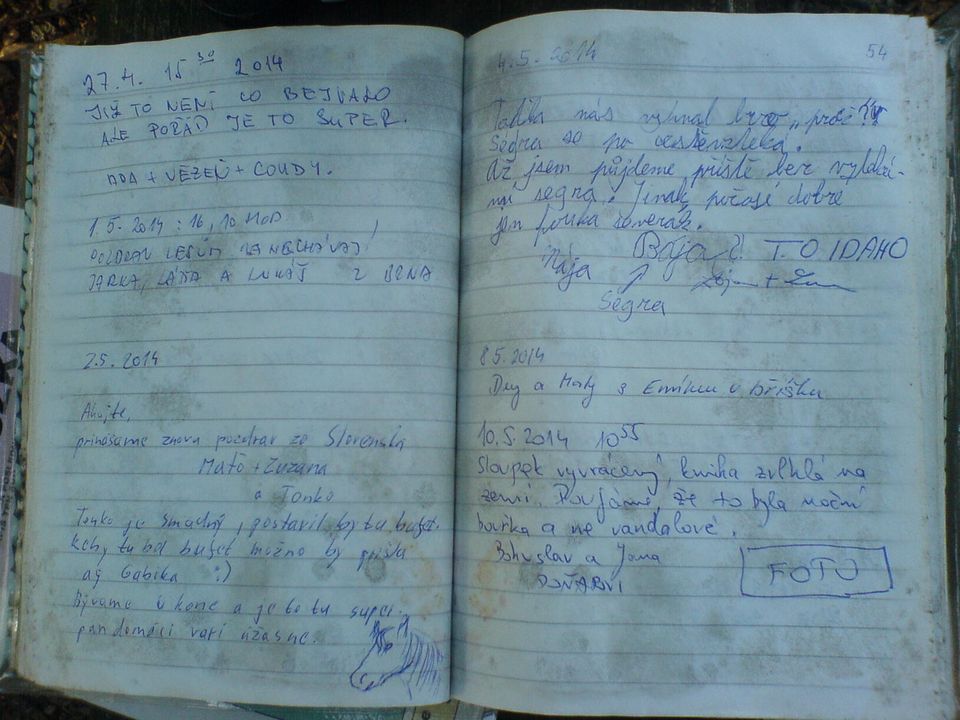 27.4. 15 30 2014
JIŽ TO NENÍ CO BEJVALO
ALE POŘÁD JE TO SUPER.
ADA + VĚZEŇ + COUDY.
1.5. 2014 : 16,10 HOD
POZDRAV LESŮM ZANECHÁVAJÍ
JARKA, LÁĎA A LUKÁŠ Z BRNA
2.5. 2014
Ahojte,
prinášame znovu pozdrav zo Slovenska
Maťo + Zuzana
a Tonko
Tonko je smädný, postavil by tu bufet.
keby tu bol bufet možno by prišla
aj Gabika :)
Bývame u kone a je to tu super.
pan domáci varí úžasne.
54
4.5. 2014
nás vyhnal proč?
Ségra se po
Až jsem půjdeme příště bez
segra. Jinak počasí dobré
jen fouká severák.
Bája č. TO IDAHO
Nája
Ségra
8.5.2014
a s v bříšku
10.5.2014 10 55
Sloupek vyvrácený, kniha zvlhlá na
zemi. Doufáme, že to byla noční
bouřka a ne vandalové.
Bohuslav a Jana
FOTO